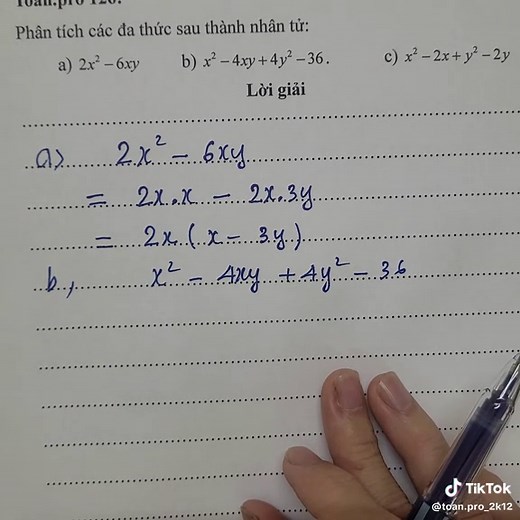 Toan.pro 120:
Phân tích các đa thức sau thành nhân tử:
a) 2x² – 6xy b) x² – 4xy + 4y² – 36. c) x² – 2x + y² – 2y
Lời giải
a) 2x² – 6xy
= 2x.x – 2x.3y
= 2x (x – 3y)
b, x² – 4xy + 4y² – 36
TikTok
@toan.pro_2k12